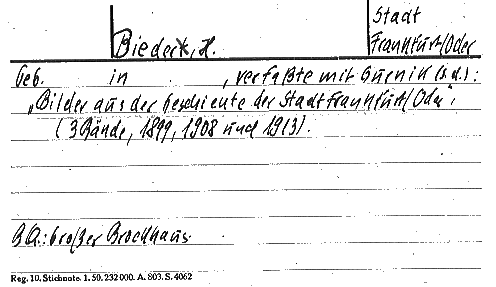 Biederk, H.
Stadt
Frankfurt/Oder
Geb. in , verfaßte mit Gurnik (s.d.):
"Bilder aus der Geschichte der Stadt Frankfurt/Oder",
(3 Bände, 1899, 1908 und 1913).
BQ.: Großer Brockhaus
Reg. 10. Stichnote. 1. 50. 232000. A. 803. S. 4062